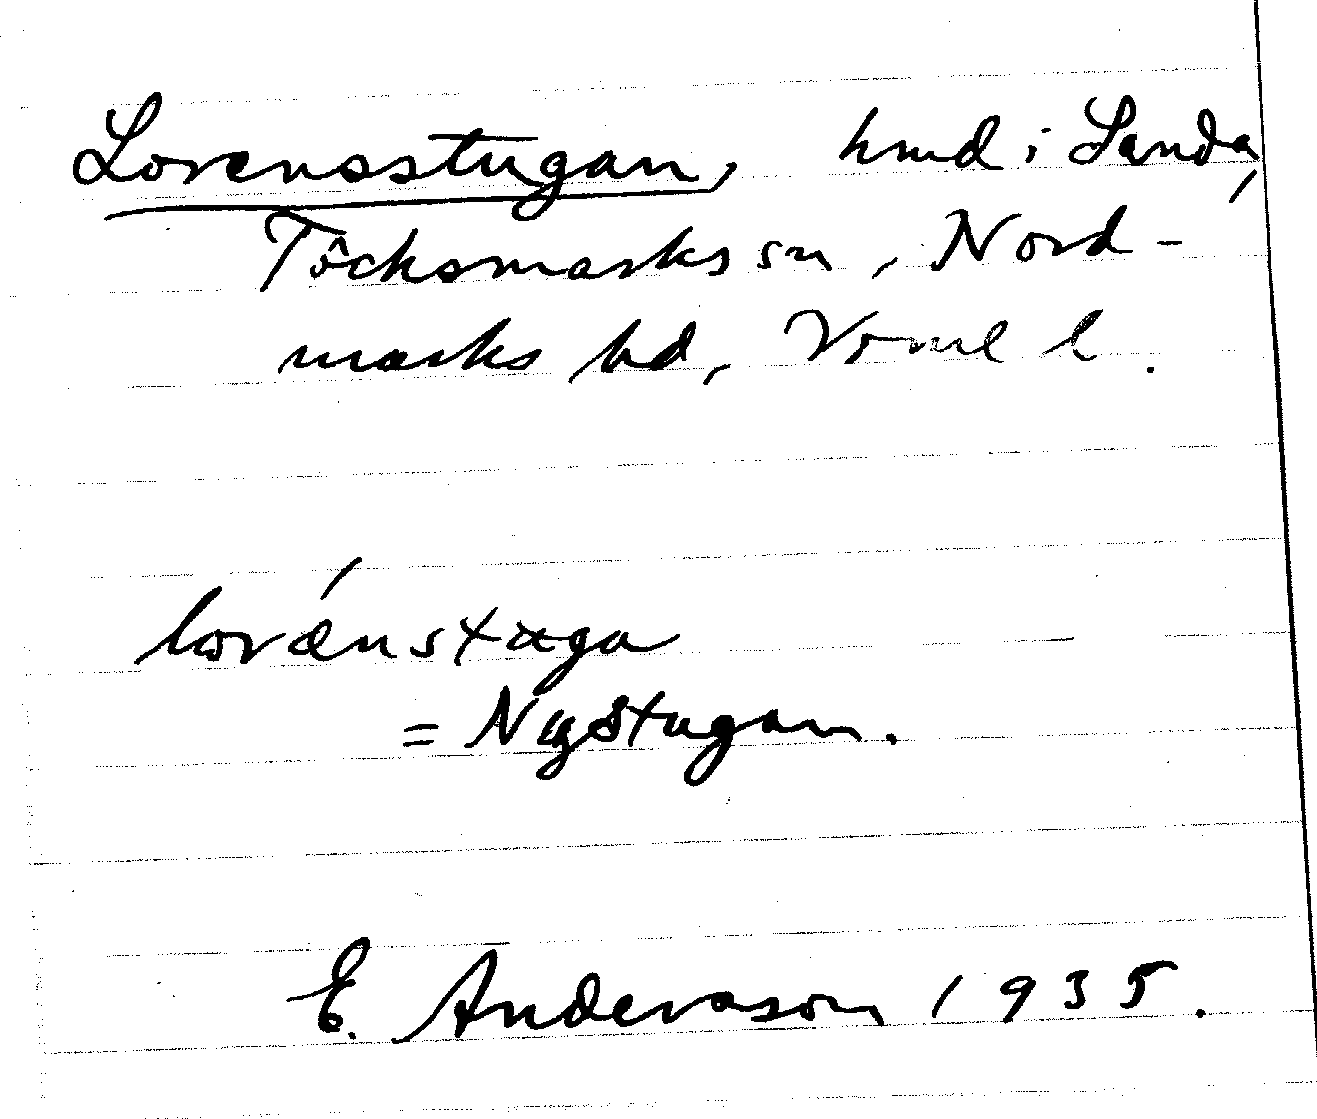 Lorensstugan, hmd i Sanda,
Töcksmarks sn, Nord-
marks hd, Vrml l.
lorǽnstuga
= Nystugan.
E. Anderson 1935.